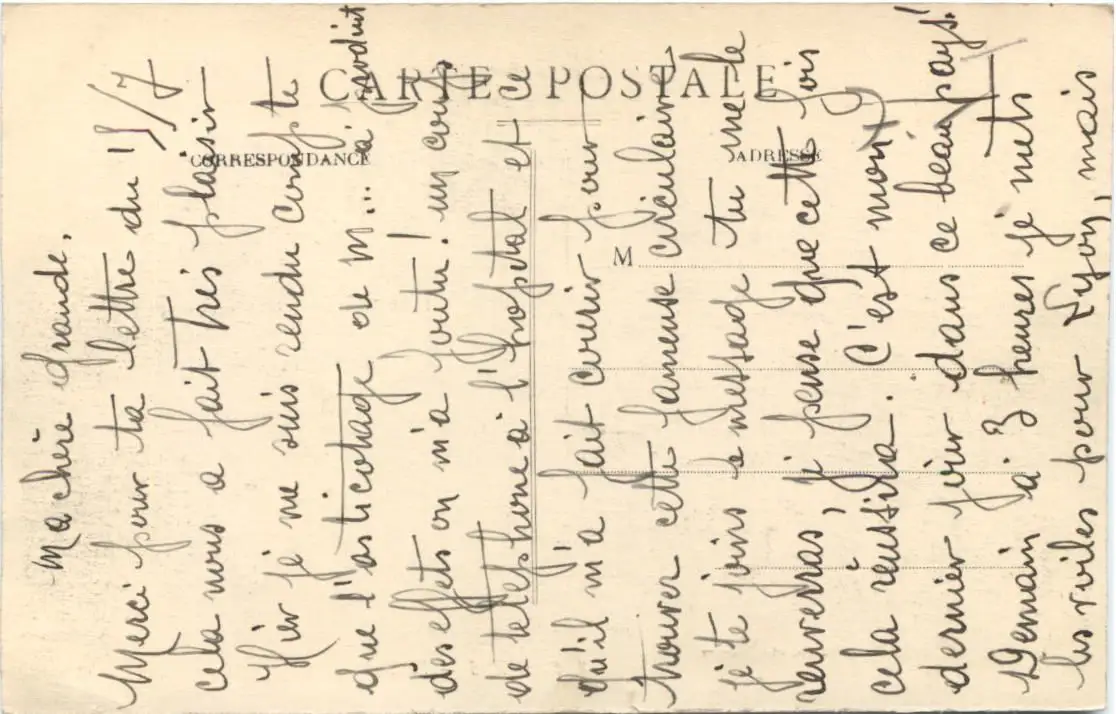 CARTE POSTALE
CORRESPONDANCE
ADRESSE
M
Ma chère grande,
Merci pour ta lettre du 15/7
cela nous a fait très plaisir
Hier je me suis rendu compte
que l'asticotage de M... a produit
des effets on m'a foutu! un coup
de téléphone à l'hopital et ce
qu'il m'a fait courir pour
trouver cette fameuse circulaire,
je te joins le message tu me le
renverras, je pense que cette fois
cela réussira. C'est mon
dernier jour dans ce beau pays!
Demain à 3 heures je mets
les voiles pour Lyon, mais